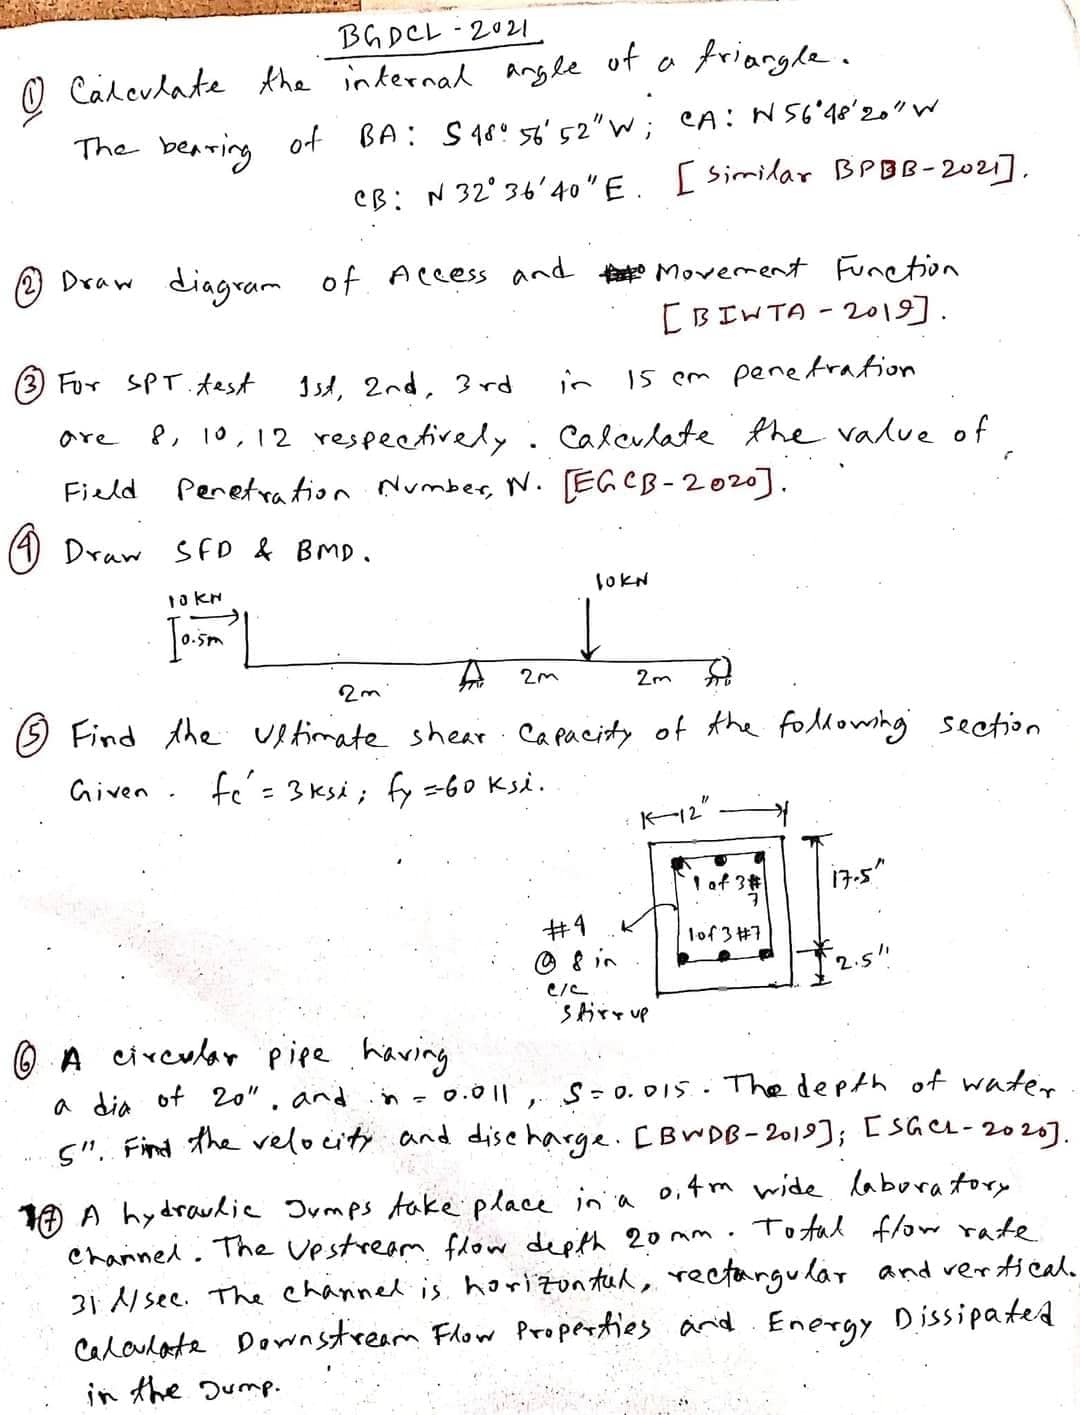 BGDCL - 2021
① Calculate the internal angle of a triangle.
The bearing of BA: S 48° 56' 52" W; CA: N 56°48'20" W
CB: N 32° 36' 40" E. [Similar BPDB-2021].
② Draw diagram of Access and Movement Function
[BIWTA - 2019].
③ For SPT test 1st, 2nd, 3rd in 15 cm penetration
are 8, 10, 12 respectively. Calculate the value of
Field Penetration Number, N. [EGCB-2020].
④ Draw SFD & BMD.
10 KN
10KN
0.5m
2m
2m
2m
⑤ Find the Ultimate shear Capacity of the following section
Given. fc' = 3 ksi; fy = 60 ksi.
12"
1 of 3#7
17.5"
#4
@ 8 in
c/c
Stirrup
1of 3 #7
2.5"
⑥ A circular pipe having
a dia of 20", and n = 0.011, S = 0.015. The depth of water
5". Find the velocity and discharge. [BWDB-2019]; [SGCL-2020].
⑦ A hydraulic Jumps take place in a 0.4m wide laboratory
channel. The Upstream flow depth 20 mm. Total flow rate
31 l/sec. The channel is horizontal, rectangular and vertical.
Calculate Downstream Flow Properties and Energy Dissipated
in the Jump.